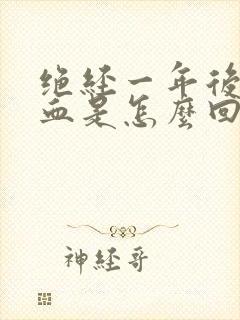 绝经一年後
血是怎麼回
神經哥